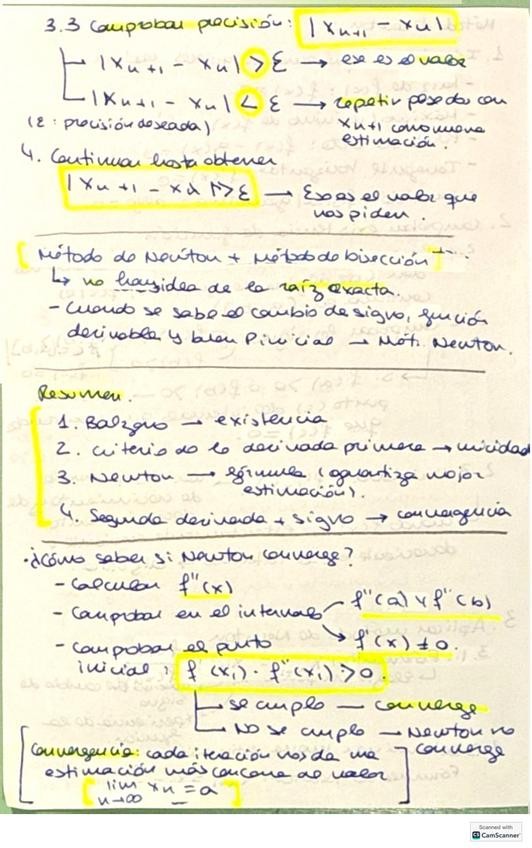 3.3 Comprobar precisión: |Xn+1 - Xn|
|Xn+1 - Xn| > ε → ese es el valor
|Xn+1 - Xn| < ε → repetir paso dos con
(ε: precisión deseada) Xn+1 como nueva
estimación.
4. Continuar hasta obtener
|Xn+1 - Xn| > ε → Ese es el valor que
nos piden.
Método de Newton + Método de bisección
↳ no hay idea de la raíz exacta.
- Cuando se sabe el cambio de signo, función
derivable y buen P inicial → Mét. Newton.
Resumen
1. Bolzano → existencia
2. Criterio de la derivada primera → unicidad
3. Newton → fórmula (garantiza mejor
estimación).
4. Segunda derivada + signo → convergencia
· ¿Cómo saber si Newton converge?
- Calcular f''(x)
- Comprobar en el intervalo f''(a) y f''(b)
f'(x) ≠ 0.
- Comprobar el punto
inicial: f(xi) · f''(xi) > 0.
Se cumple — converge
No se cumple → Newton no
converge
Convergencia: cada iteración nos da una
estimación más cercana de valor
lim Xn = a
n→∞
Scanned with
CS CamScanner